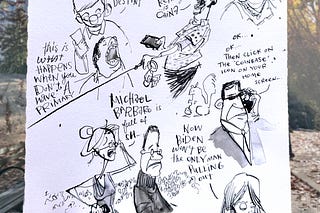 DESTINY
COIN?
this is
WHAT
HAPPENS
WHEN YOU
DON'T
HAVE A
PRIMARY
OK...
OF...
THEN CLICK ON
THE "COINBASE"
ICON ON YOUR
HOME
SCREEN...
MICHAEL
BARBARO is
full of
NOW
BIDEN
WON'T BE
THE ONLY MAN
PULLING
OUT